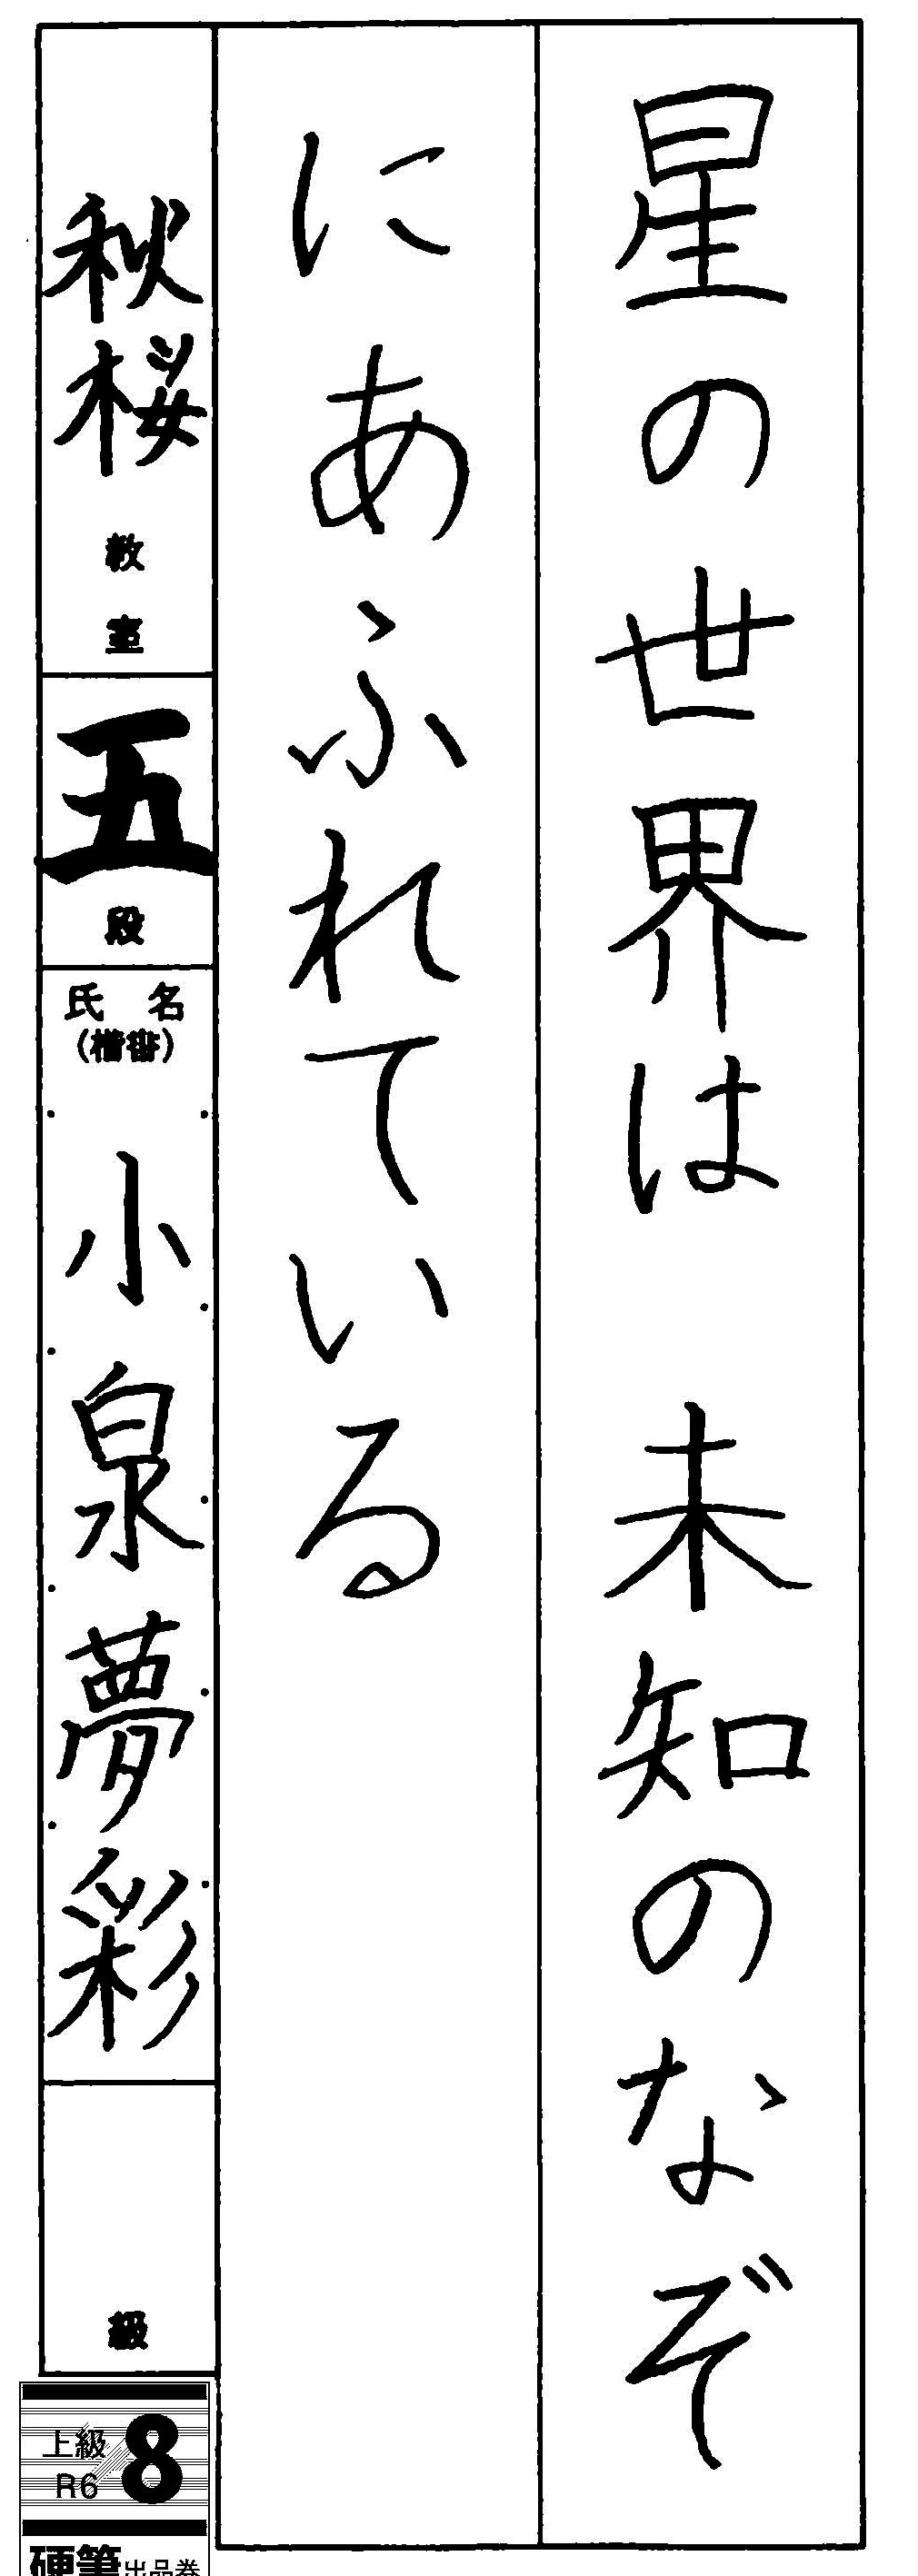 星の世界は　未知のなぞ
にあふれている
秋桜教室
五段
氏名
(楷書)
小泉夢彩
級
上級
R6
8
硬筆出品券